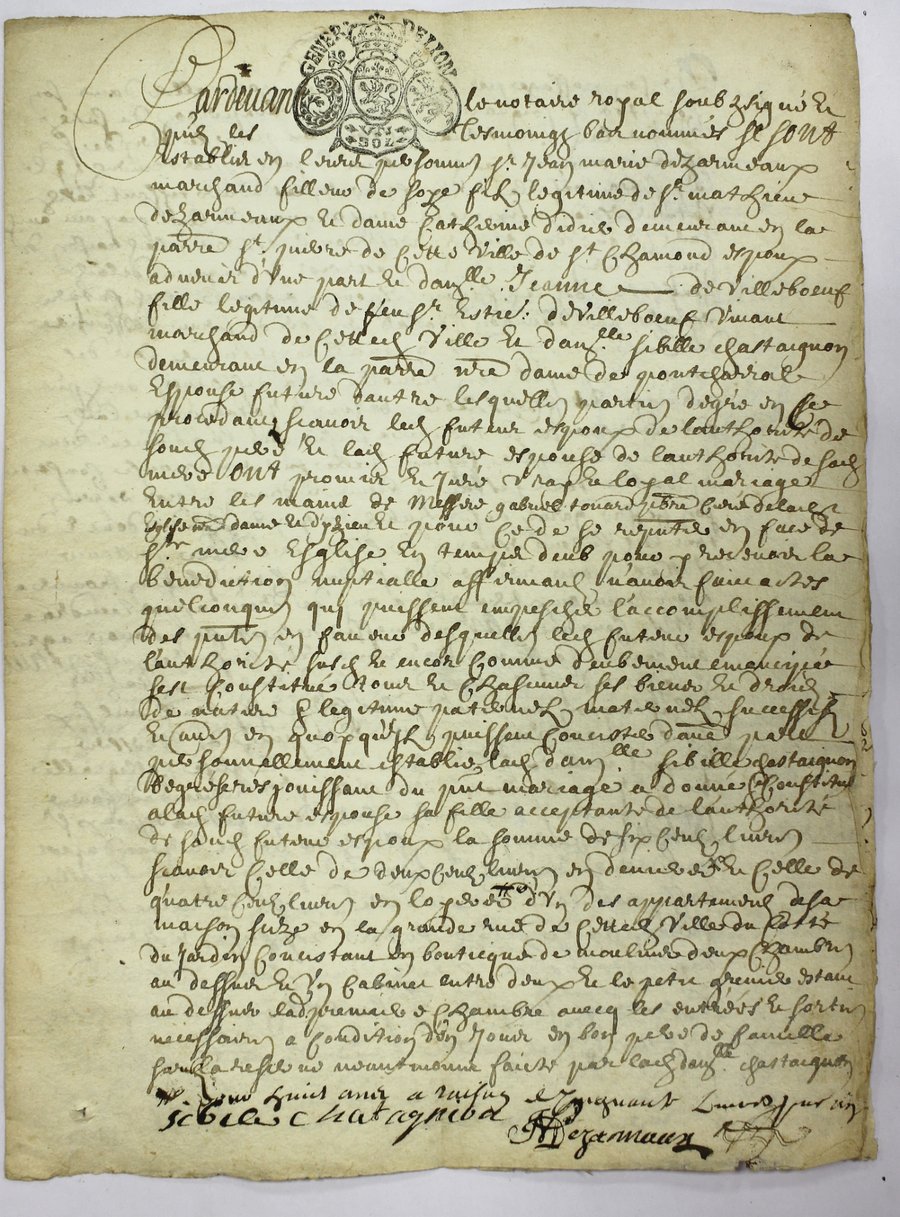 GENER DE LION
VN SOL
Pardevant le notaire royal soubzsigné et
les tesmoings bas nommés se sont
establis en leurs personnes sr Jean marie dezarmeaux
marchand filleur de soye filz legitime de sr mathieu
dezarmeaux et dame Catherine didier demeurant en la
parre st pierre de cette ville de st Chamond espoux
advenir d'une part et damlle Jeanne de villeboeuf
fille legitime de feu sr Estie: de villeboeuf vivant
marchand de cette ville et damlle sibille chastaignon
demeurant en la parre nre dame de
Espouse future dautre lesquelles parties de gré en ce
procedant scavoir led futur espoux de lauthorité de
sond pere et lad future espouse de lauthorité de sad
mere ont promis et juré vray et loyal mariage
entre les mains de Messire gabriel pbre curé de lad
Eglise nre dame et pour ce de se en face de
ste mere Esglise en temps deub pour y recevoir la
benediction nuptialle affirmant n'avoir faict actes
quelconques qui puissent empescher l'accomplissement
des pntes en faveur desquelles led futur espoux de
l'authorité susd et encor comme deubement emancipé
sest constitué tous et chascuns ses biens et droictz
de nature legitime paternelz maternelz successifz
et autres en quoy qu'ilz puissent concister dautre part
personnellement establie lad damlle sibille chastaignon
jouissant du pnt mariage a donné et constitué
a lad future espouse sa fille acceptante de l'authorité
de sond futur espoux la somme de six centz livres
scavoir celle de deux centz livres en deniers et celle de
quatre centz livres en d'un des appartementz de sa
maison size en la grande rue de cetted ville du cotté
du jardin concistant en bouticque de deux chambres
au dessus et un cabinet entre deux et le petit grenier estant
au dessus de lad premiere chambre avecq les entrées et sorties
necessaires a condition d'en jouir en bon pere de famille
sans la reserve neantmoins faicte par lad damlle chastaignon
pour huict ans a
sibile chatagnion
Dezarmaux